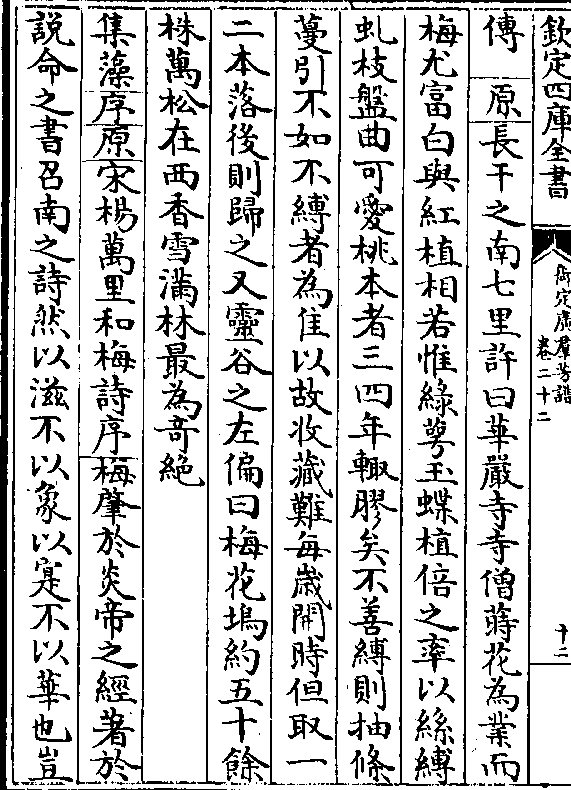 欽定四庫全書
御定廣羣芳譜
卷二十二
十二
傳　原長干之南七里許曰華嚴寺寺僧蒔花為業而
梅尤富白與紅植相若惟綠萼玉蝶植倍之率以絲縛
虬枝盤曲可愛桃本者三四年輙膠矣不善縛則抽條
蔓引不如不縛者為佳以故收藏難每歲開時但取一
二本落後則歸之又靈谷之左偏曰梅花塢約五十餘
株萬松在西香雪滿林最為奇絶
集藻序原宋楊萬里和梅詩序梅肇於炎帝之經著於
説命之書召南之詩然以滋不以象以寔不以華也豈